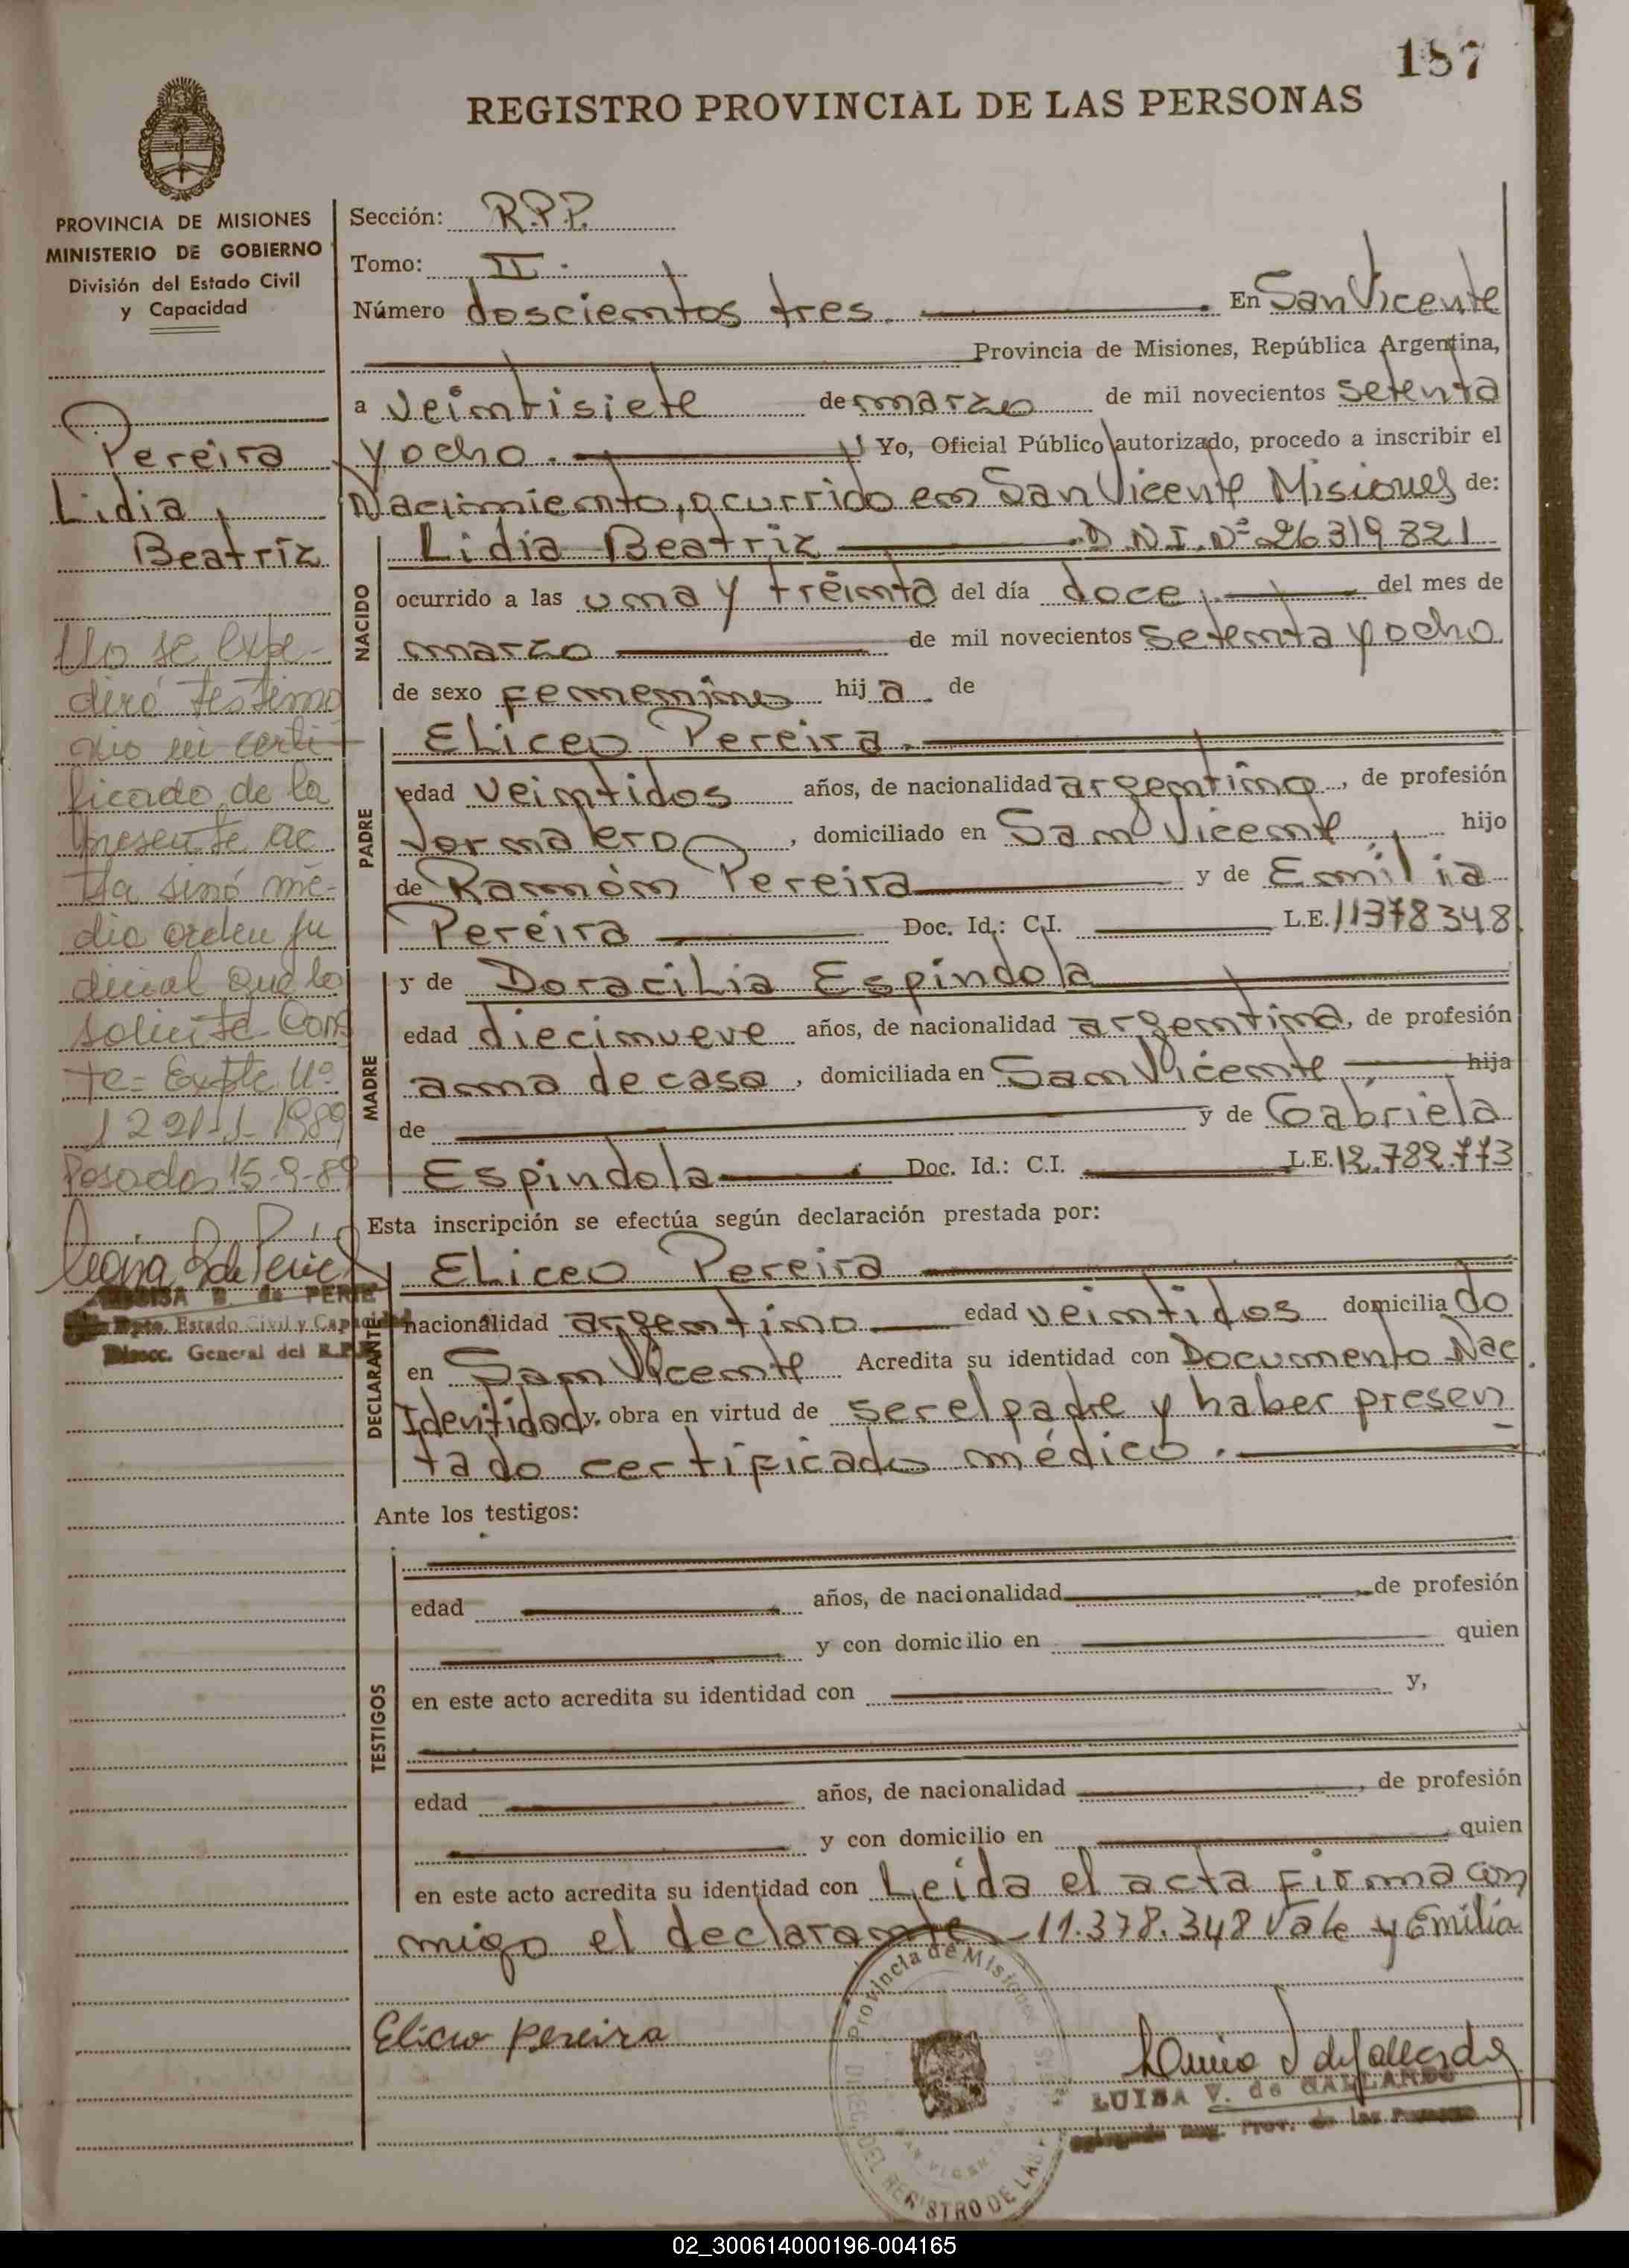 187
REGISTRO PROVINCIAL DE LAS PERSONAS
PROVINCIA DE MISIONES
MINISTERIO DE GOBIERNO
División del Estado Civil
y Capacidad
Pereira
Lidia
Beatríz
No se expe-
dirá testimo
nio ni certi
ficado de la
presente ac
ta sinó me-
dio orden ju
dicial que lo
solicite Cons
te= Expte Nº
1221-J-1989
Posadas 15-9-89
de PERIE
Dpto. Estado Civil y Capacidad
Direcc. General del R.P.P.
Sección: R.P.P.
Tomo: II.
Número doscientos tres. En San Vicente
Provincia de Misiones, República Argentina,
a veintisiete de marzo de mil novecientos setenta
y ocho. Yo, Oficial Público autorizado, procedo a inscribir el
Nacimiento, ocurrido en San Vicente Misiones de:
NACIDO
Lidia Beatriz D.N.I. Nº 26319821
ocurrido a las una y treinta del día doce, del mes de
marzo de mil novecientos setenta y ocho
de sexo femenino hija de
PADRE
Eliceo Pereira.
edad veintidos años, de nacionalidad argentino, de profesión
Jornalero, domiciliado en San Vicente, hijo
de Ramón Pereira y de Emilia
Pereira Doc. Id.: C.I. L.E. 11378348
MADRE
y de Doracilia Espíndola
edad diecinueve años, de nacionalidad argentina, de profesión
ama de casa, domiciliada en San Vicente, hija
de y de Gabriela
Espindola Doc. Id.: C.I. L.E. 12.782.773
Esta inscripción se efectúa según declaración prestada por:
DECLARANTE
Eliceo Pereira
nacionalidad argentino edad veintidos domiciliado
en San Vicente Acredita su identidad con Documento Nac.
Identidad y, obra en virtud de ser el padre y haber presen
tado certificado médico.
Ante los testigos:
TESTIGOS
edad años, de nacionalidad de profesión
y con domicilio en quien
en este acto acredita su identidad con y,
edad años, de nacionalidad, de profesión
y con domicilio en quien
en este acto acredita su identidad con Leída el acta firma con
migo el declarante 11.378.348 Vale y Emilia
Eliceo pereira
Provincia de Misiones
DIREC. DEL REGISTRO DE LAS
SAN VICENTE
LUISA V. de GALLARDO
Reg. Prov. de las Personas
02_300614000196-004165